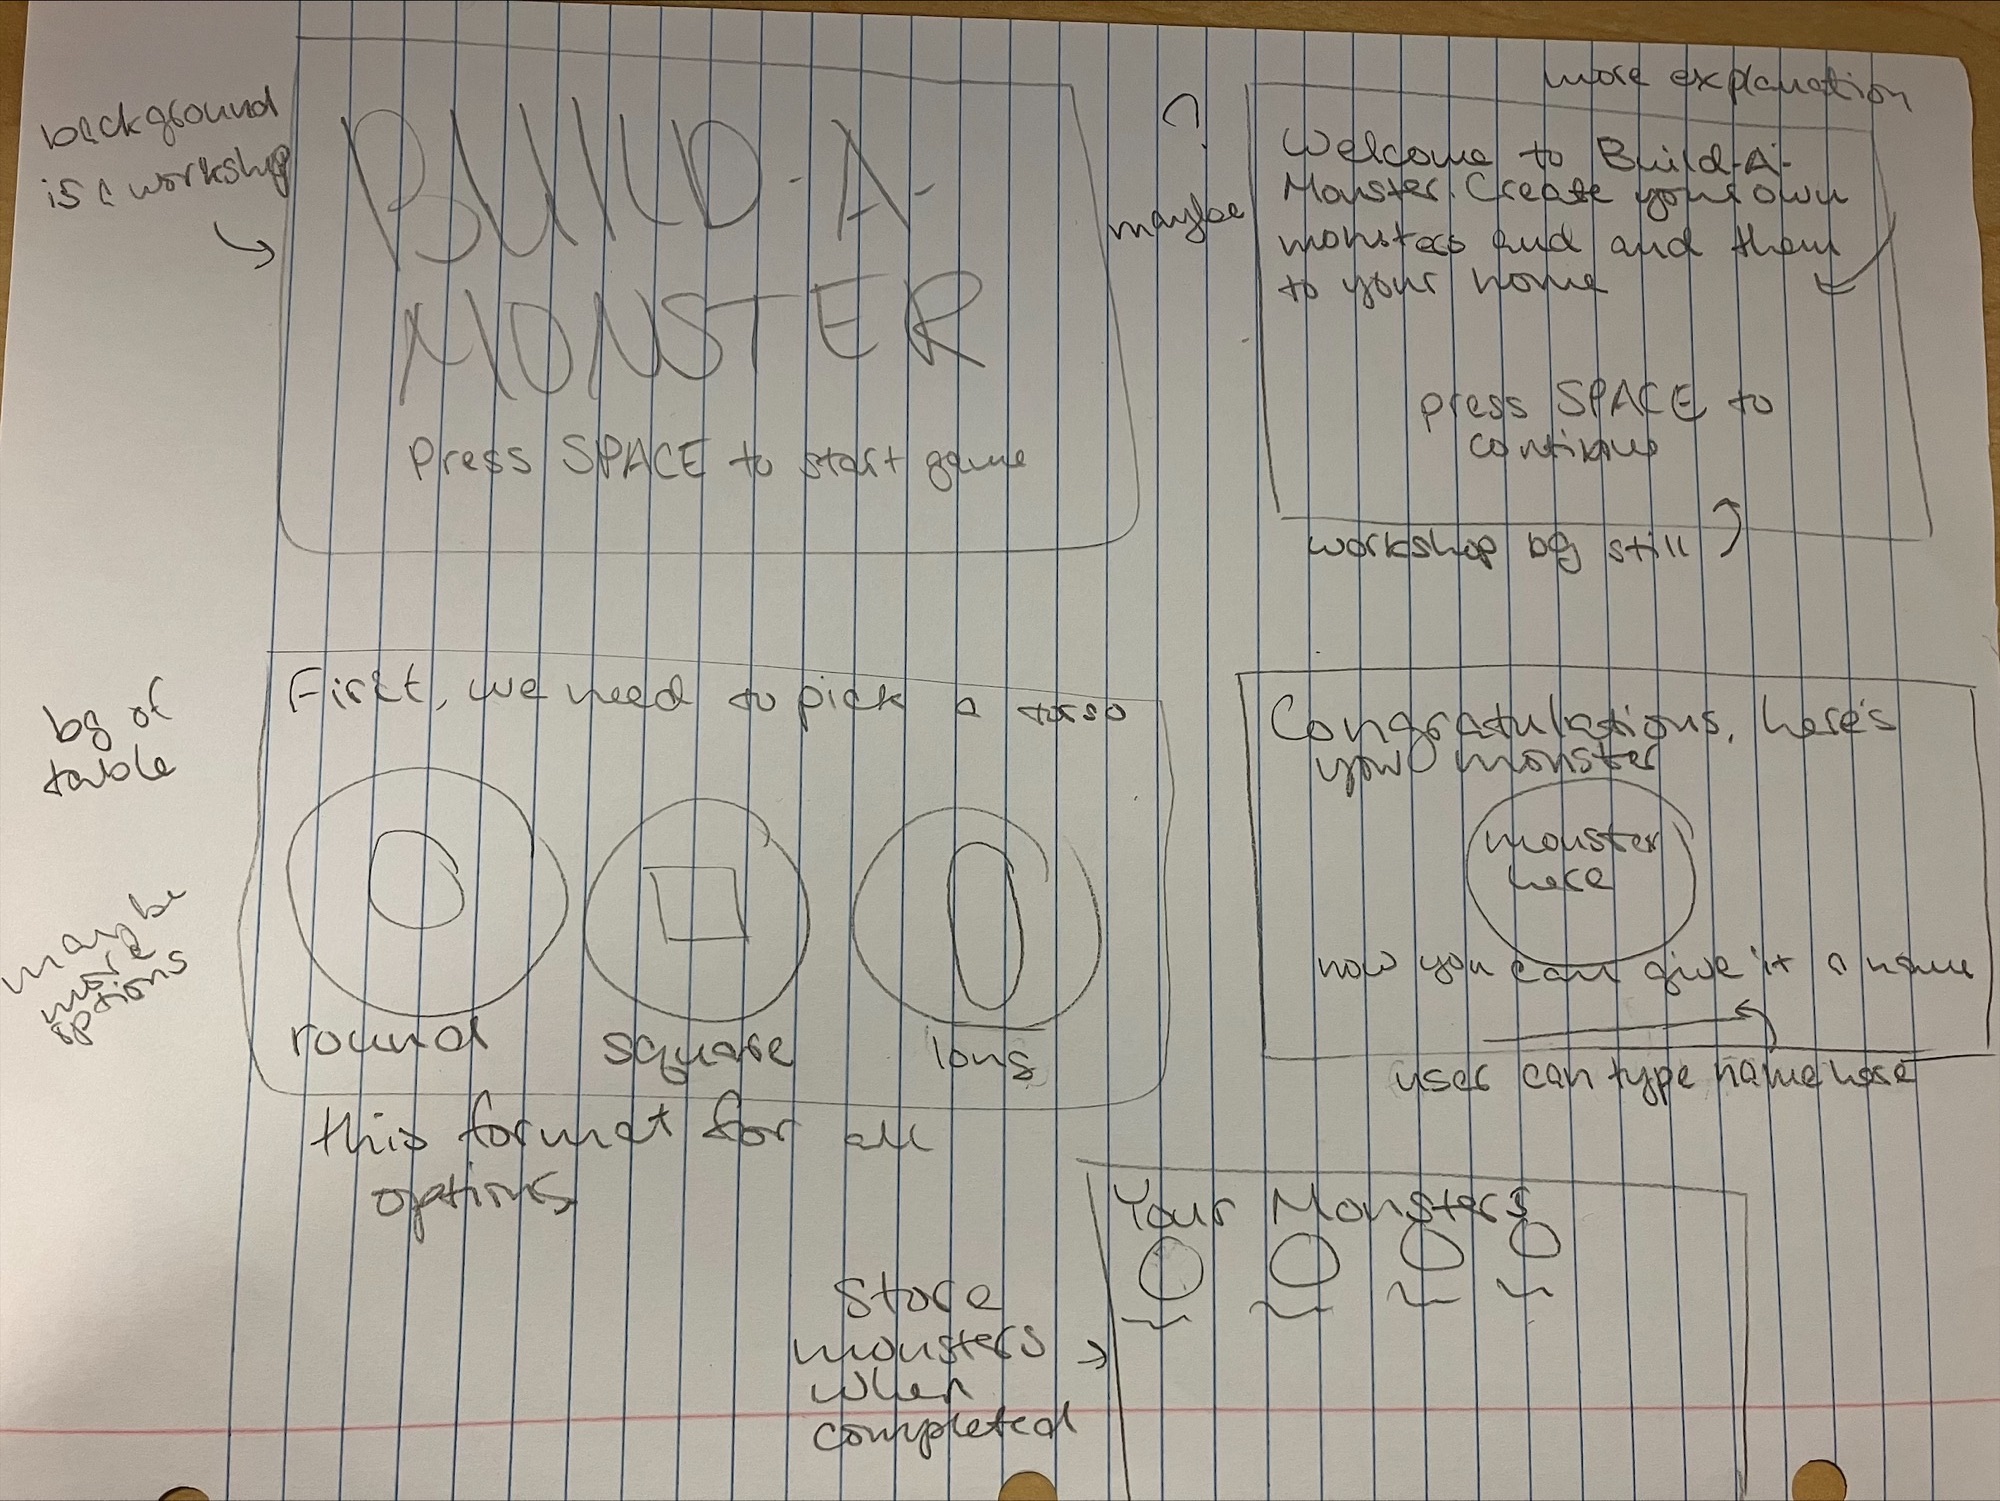 background
is a workshop
BUILD-A-
MONSTER
Press SPACE to start game
?
maybe
more explanation
Welcome to Build-A-
Monster. Create your own
monsters and and them
to your home
press SPACE to
continue
workshop bg still
bg of
table
maybe
more
options
First, we need to pick a torso
round
square
long
this format for all
options
Congratulations, here's
your monster
monster
here
now you can give it a name
user can type name here
Store
monsters
when
completed
Your Monsters